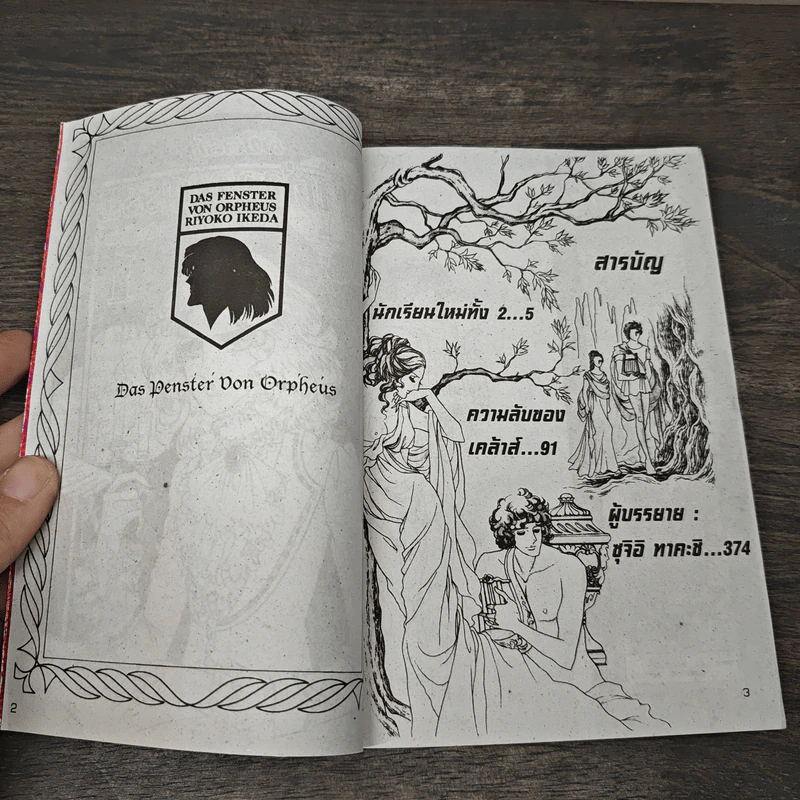 DAS FENSTER
VON ORPHEUS
RIYOKO IKEDA
Das Penster Von Orpheus
2
สารบัญ
นักเรียนใหม่ทั้ง 2...5
ความลับของ
เคล้าส์...91
ผู้บรรยาย :
ซุจิอิ ทาคะชิ...374
3